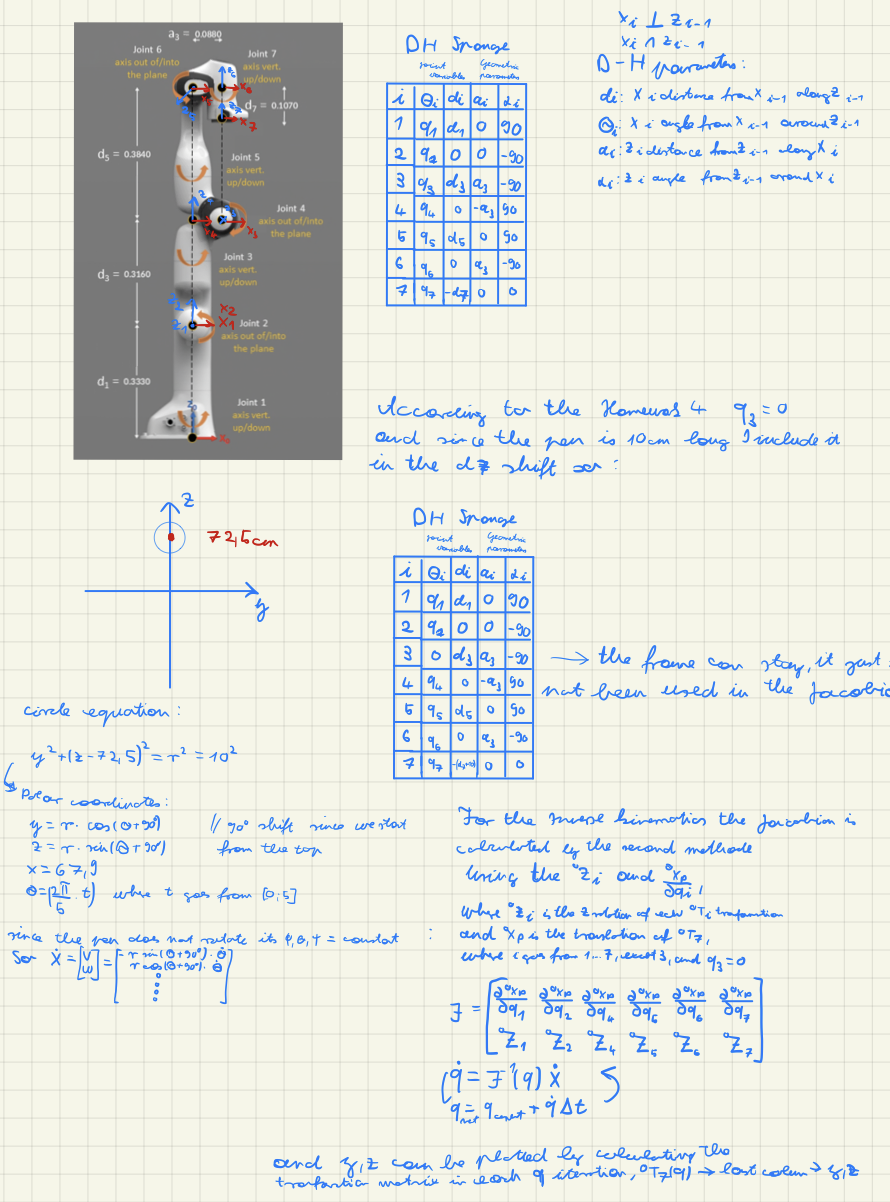 a₃ = 0.0880
Joint 6
axis out of/into
the plane
Joint 7
axis vert.
up/down
d₇ = 0.1070
x₇
d₅ = 0.3840
Joint 5
axis vert.
up/down
Joint 4
axis out of/into
the plane
x₃
d₃ = 0.3160
Joint 3
axis vert.
up/down
x₂
x₁
z₁
Joint 2
axis out of/into
the plane
d₁ = 0.3330
Joint 1
axis vert.
up/down
x₀
DH Sponge
joint variables
Geometric parameters
i θi di ai αi
1 q1 d1 0 90
2 q2 0 0 -90
3 q3 d3 a3 -90
4 q4 0 -a3 90
5 q5 d5 0 90
6 q6 0 a3 -90
7 q7 -d7 0 0
xi ⊥ zi-1
xi ∩ zi-1
D-H parameters:
di: xi distance from xi-1 along zi-1
θi: xi angle from xi-1 around zi-1
ai: zi distance from zi-1 along xi
αi: zi angle from zi-1 around xi
According to the 4 q3 = 0
and since the pen is 10cm long I include it
in the d7 shift so:
z
72,5cm
y
DH Sponge
joint variables
Geometric parameters
i θi di ai αi
1 q1 d1 0 90
2 q2 0 0 -90
3 0 d3 a3 -90
4 q4 0 -a3 90
5 q5 d5 0 90
6 q6 0 a3 -90
7 q7 0 0
→ the frame can stay, it just
not been used in the
circle equation:
y² + (z-72,5)² = r² = 10²
Polar coordinates:
y = r · cos(θ+90°) // 90° shift since we start
z = r · sin(θ+90°) from the top
x = 67,9
θ = (2π/5 · t) where t goes from [0;5]
since the pen does not rotate its φ,θ,ψ = constant :
So Ẋ = [v w] = [-r sin(θ+90°)·θ̇
r cos(θ+90°)·θ̇
For the inverse kinematics the Jacobian is
calculated by the second methode
Using the ⁰Zi and ∂⁰xp/∂qi,
where ⁰Zi is the z rotation of each ⁰Ti
and ⁰xp is the translation of ⁰T7,
where i goes from 1...7, 3, and q3=0
J = [∂⁰xp/∂q1 ∂⁰xp/∂q2 ∂⁰xp/∂q4 ∂⁰xp/∂q5 ∂⁰xp/∂q6 ∂⁰xp/∂q7
⁰Z1 ⁰Z2 ⁰Z4 ⁰Z5 ⁰Z6 ⁰Z7]
q̇ = J⁻¹(q) Ẋ
+ q̇ Δt
and y,z can be plotted by calculating the
matrix in each q iteration, ⁰T7(q) → last → y,z